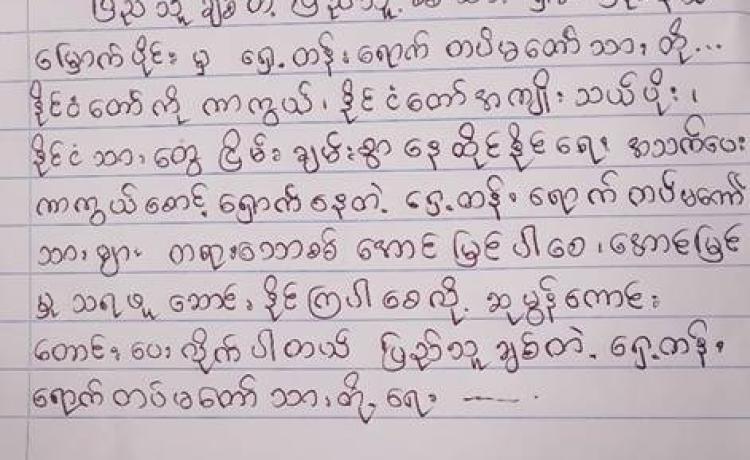 ပြည်သူချစ်တဲ့ ပြည်သူ့
မြောက်ပိုင်းမှ ရှေ့တန်းရောက် တပ်မတော်သားတို့...
နိုင်ငံတော်ကို ကာကွယ်၊ နိုင်ငံတော်အကျိုး သယ်ပိုး၊
နိုင်ငံသားတွေ ငြိမ်းချမ်းစွာ နေထိုင်နိုင်ရေး အသက်ပေး
ကာကွယ်စောင့်ရှောက်နေတဲ့ ရှေ့တန်းရောက် တပ်မတော်
သားများ တရားသောစစ် အောင်မြင်ပါစေ၊ အောင်မြင်
မှု သရဖူ ဆောင်းနိုင်ကြပါစေလို့ ဆုမွန်ကောင်း
တောင်းပေးလိုက်ပါတယ် ပြည်သူချစ်တဲ့ ရှေ့တန်း
ရောက်တပ်မတော်သားတို့ရေး —— .